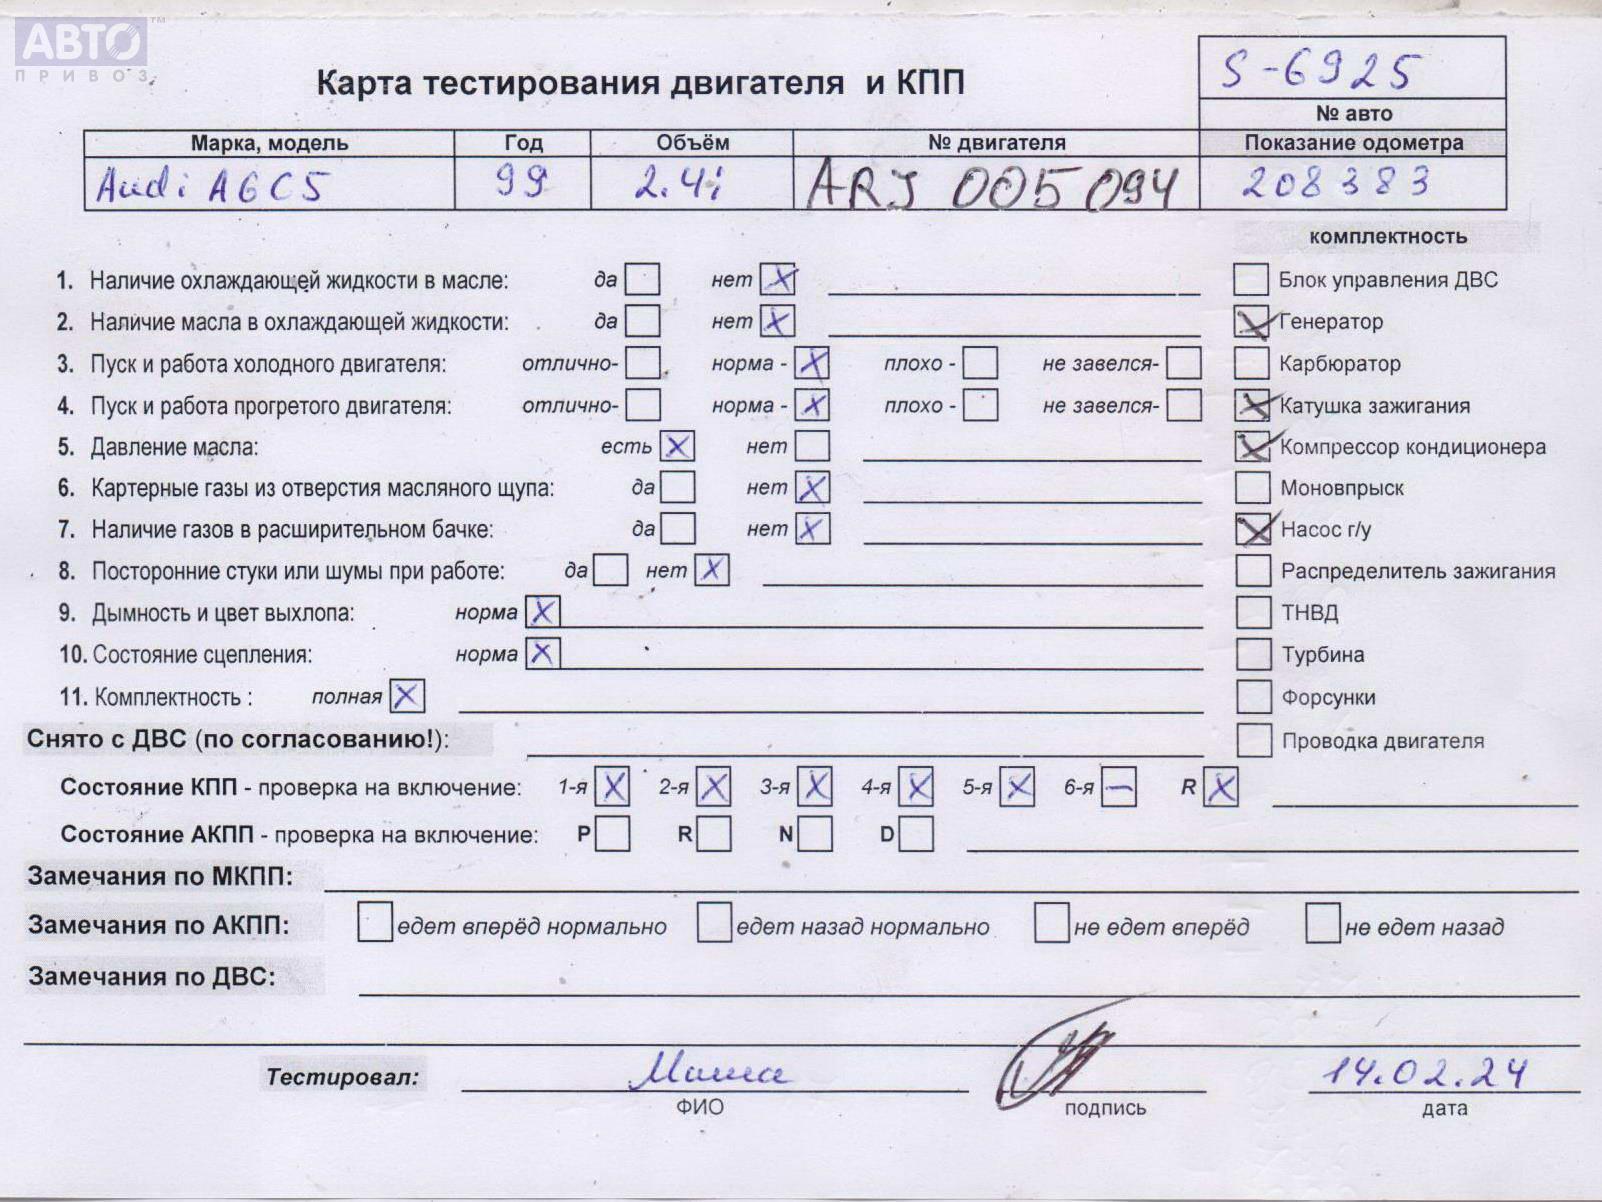 АВТО™
ПРИВОЗ
S-6925
Карта тестирования двигателя и КПП
№ авто
Марка, модель Год Объём № двигателя Показание одометра
Audi A6C5 99 2.4i ARJ 005094 208383
комплектность
1. Наличие охлаждающей жидкости в масле: да нет X Блок управления ДВС
2. Наличие масла в охлаждающей жидкости: да нет X X Генератор
3. Пуск и работа холодного двигателя: отлично- норма - X плохо - не завелся- Карбюратор
4. Пуск и работа прогретого двигателя: отлично- норма - X плохо - не завелся- X Катушка зажигания
5. Давление масла: есть X нет X Компрессор кондиционера
6. Картерные газы из отверстия масляного щупа: да нет X Моновпрыск
7. Наличие газов в расширительном бачке: да нет X X Насос г/у
8. Посторонние стуки или шумы при работе: да нет X Распределитель зажигания
9. Дымность и цвет выхлопа: норма X ТНВД
10. Состояние сцепления: норма X Турбина
11. Комплектность : полная X Форсунки
Снято с ДВС (по согласованию!): Проводка двигателя
Состояние КПП - проверка на включение: 1-я X 2-я X 3-я X 4-я X 5-я X 6-я — R X
Состояние АКПП - проверка на включение: P R N D
Замечания по МКПП:
Замечания по АКПП: едет вперёд нормально едет назад нормально не едет вперёд не едет назад
Замечания по ДВС:
Тестировал: 14.02.24
ФИО подпись дата